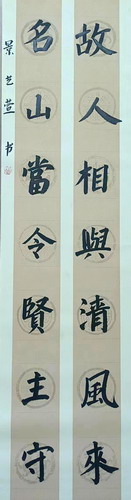 故人相與清風來
名山當令賢主守
景芝萱书